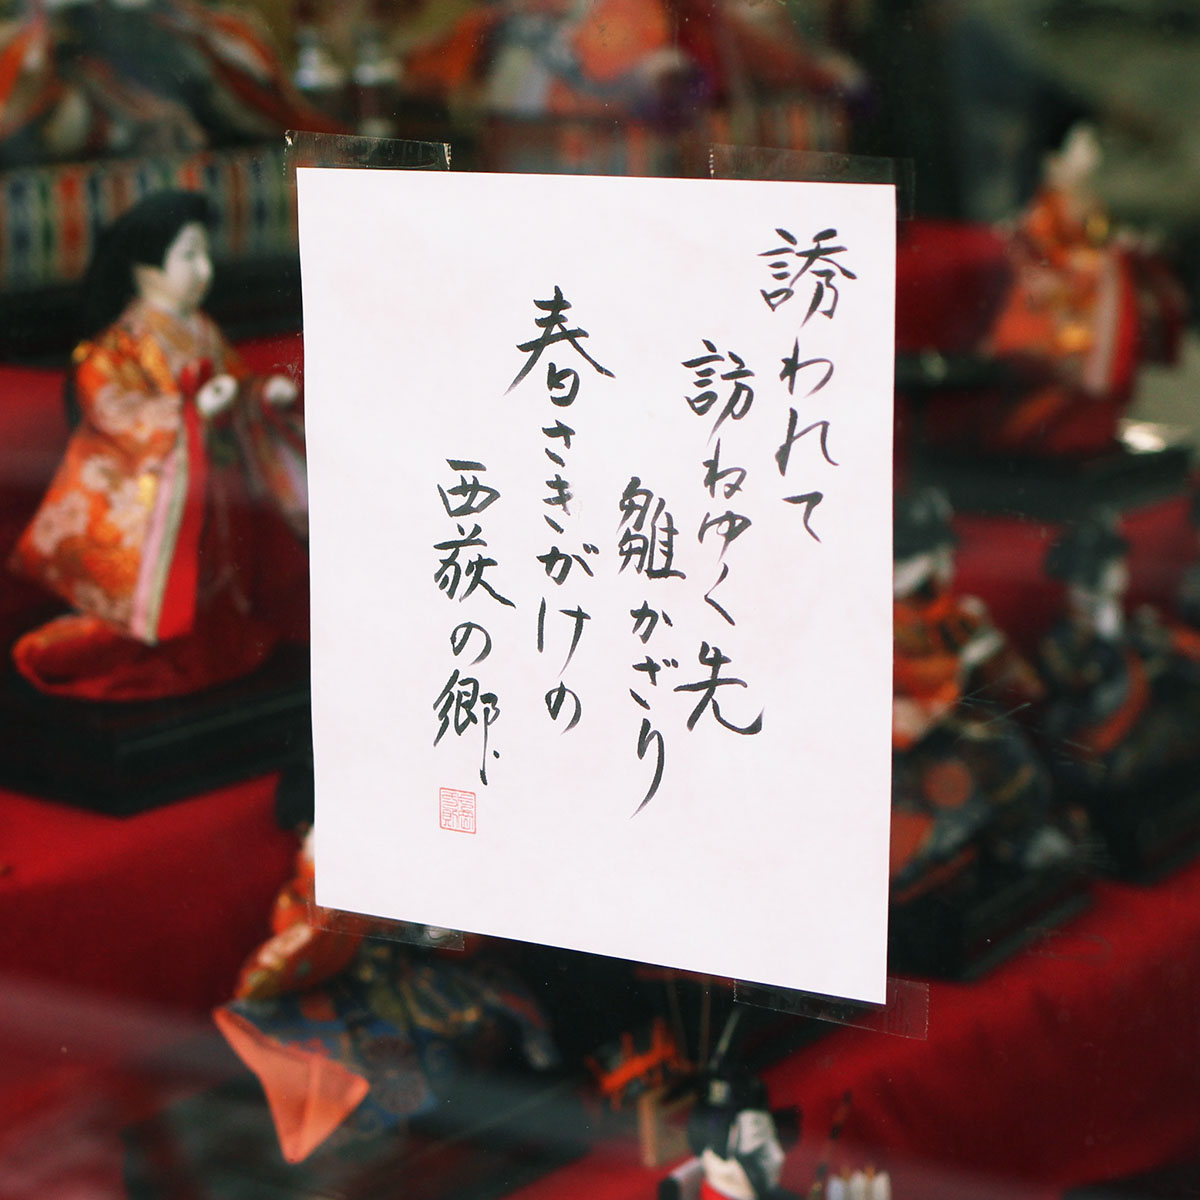 誘われて
訪ねゆく先
雛かざり
春さきがけの
西荻の郷